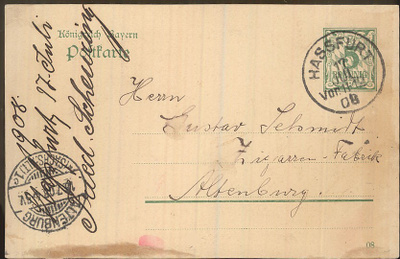 Königreich Bayern
Postkarte
HASSFURT
17 JUL
Vor
08
5
Herrn
Gustav Schmidt
Zigarren-Fabrik
Altenburg.
1908.
Hassfurt, 17. Juli
Scheuring
ALTENBURG
08